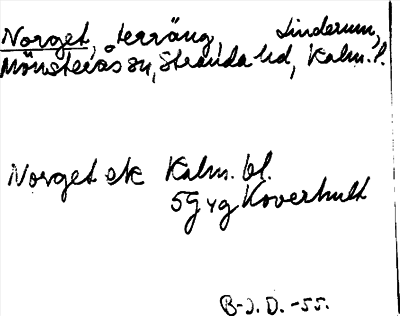 Norget, terräng, Linderum,
Mönsterås sn, Stranda hd, Kalm. l.
Norget ek Kalm. bl.
5G 4g Koverhult
B-J. D. -55.